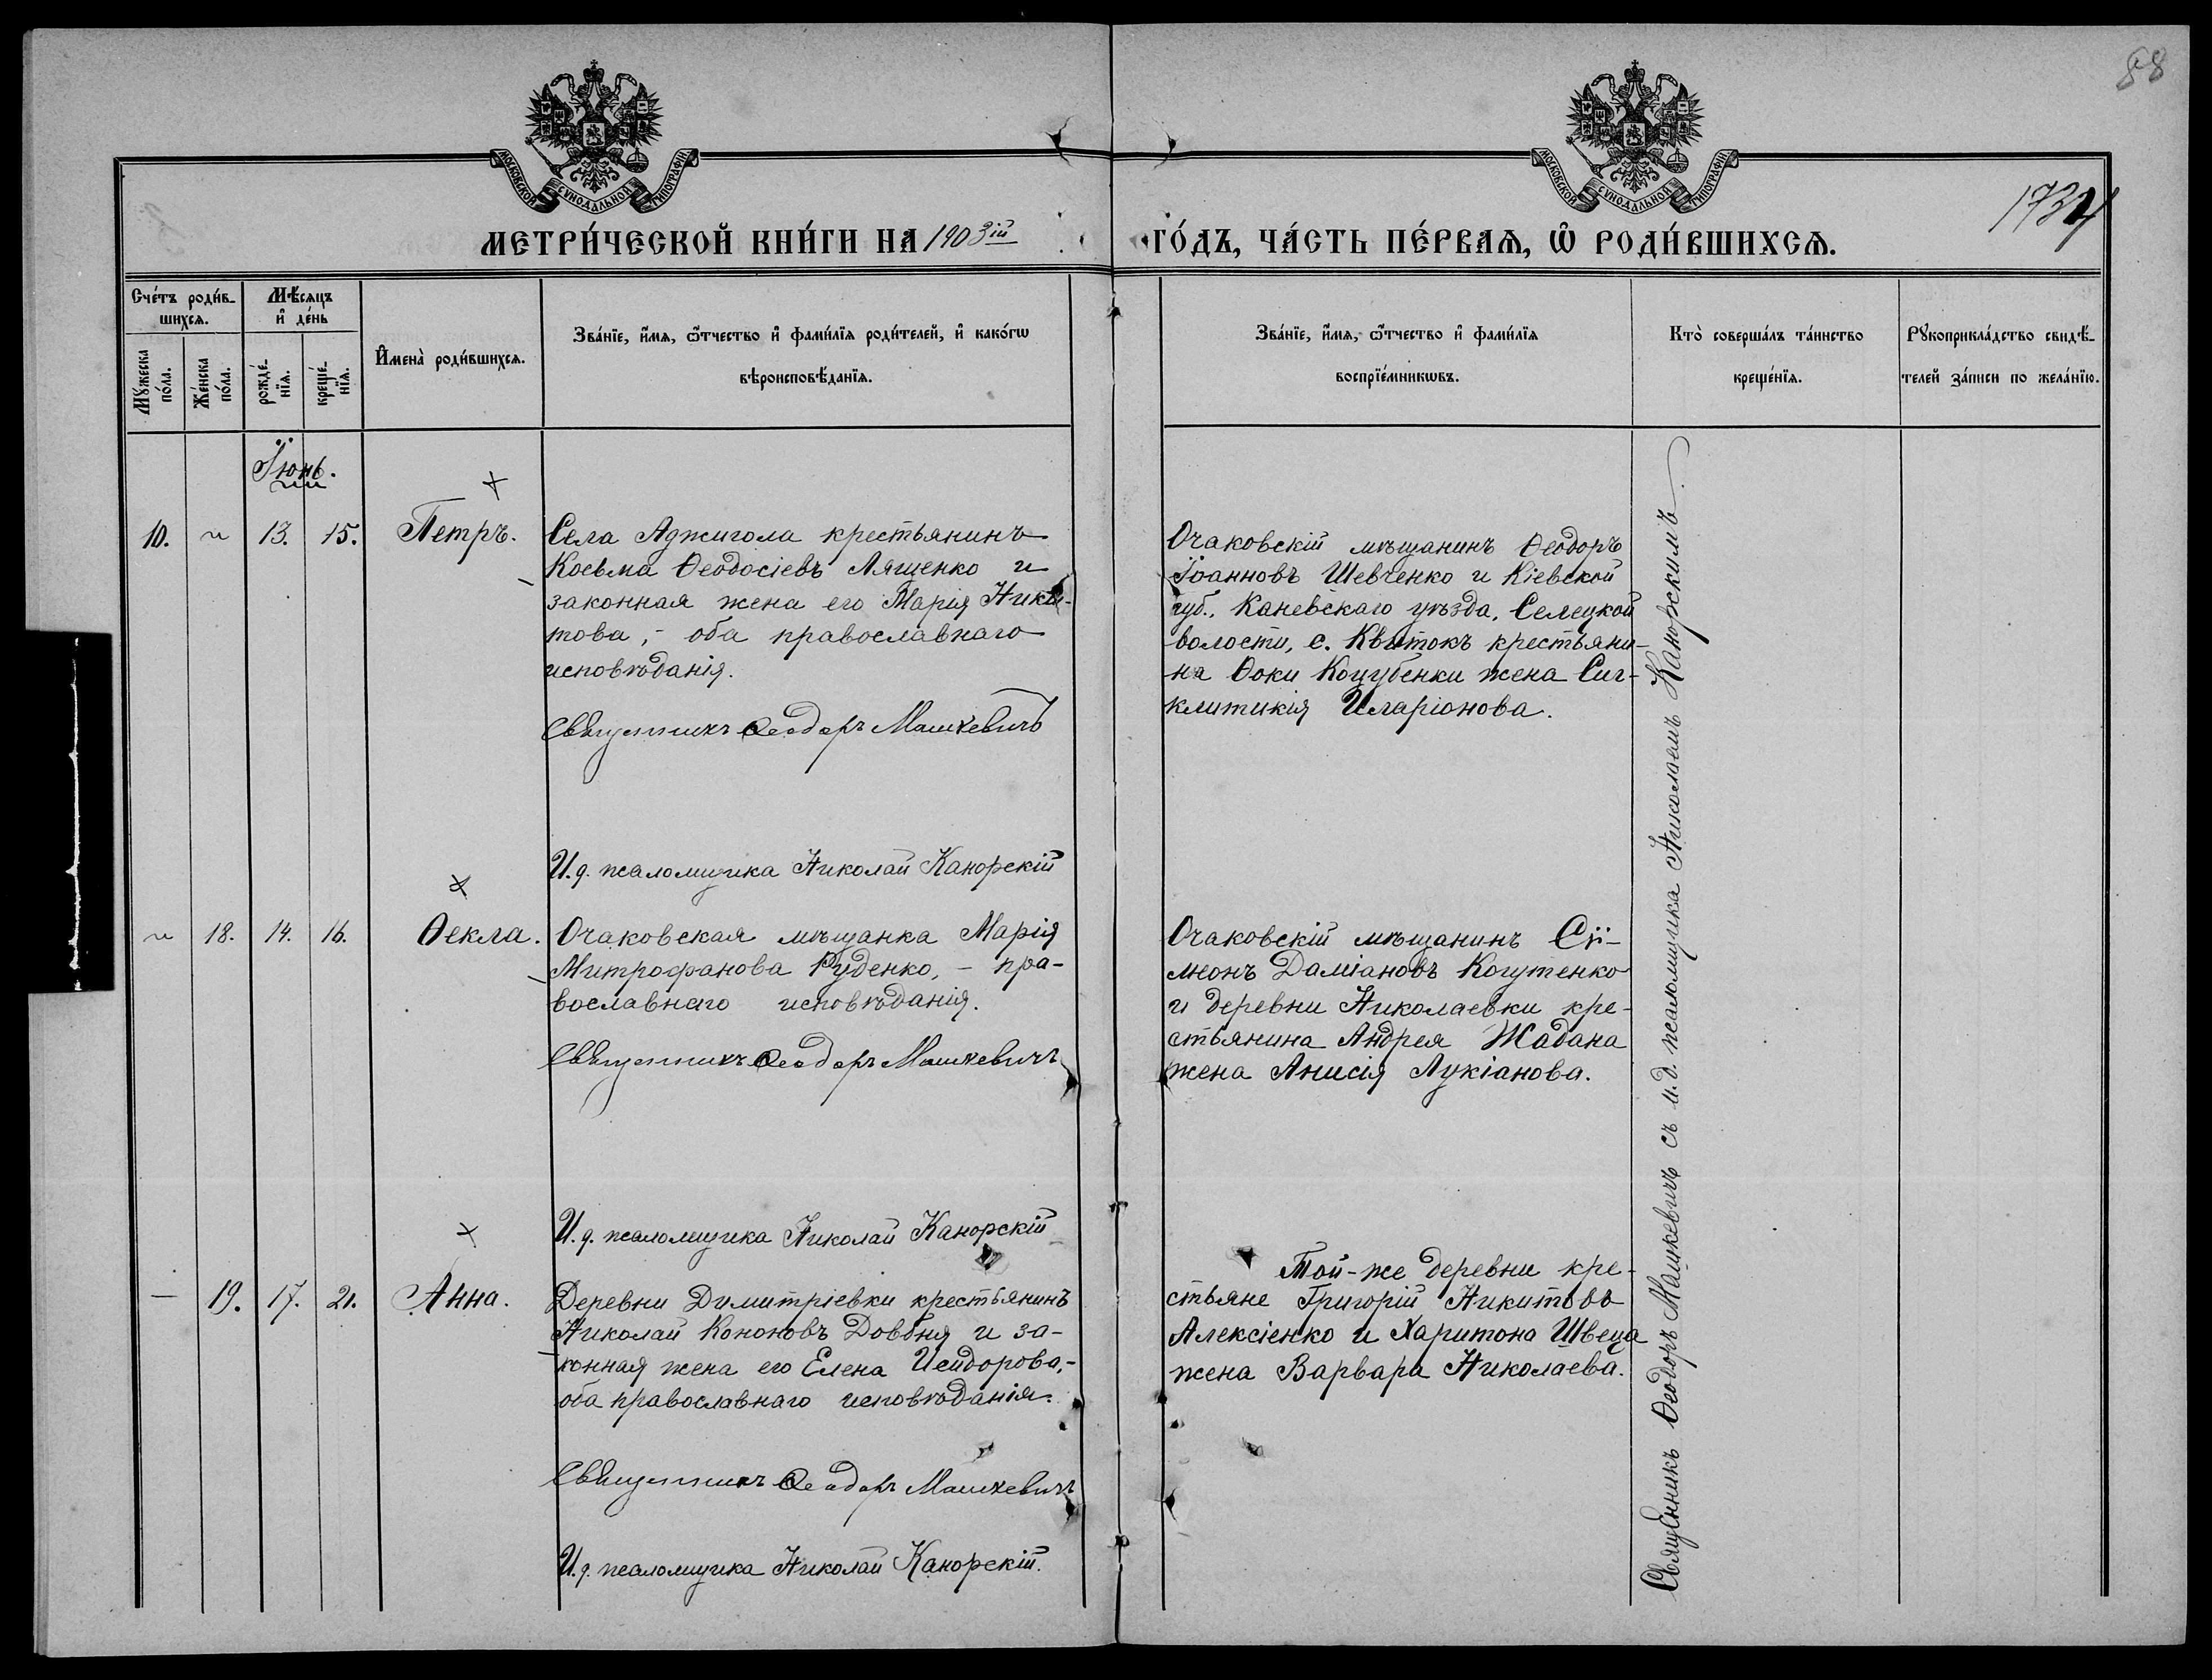 88
1734
МОСКОВСКОЙ СѴНОДАЛЬНОЙ ТИПОГРАФІИ.
МОСКОВСКОЙ СѴНОДАЛЬНОЙ ТИПОГРАФІИ.
МЕТРИ́ЧЕСКОЙ КНИ́ГИ НА 1903ій
ГО́ДЪ, ЧА́СТЬ ПЕ́РВАѦ, Ѡ҆ РОДИ́ВШИХСѦ.
Сче́тъ роди́в-
шихсѧ.
Мѣ́сѧцъ
и҆ де́нь
Мꙋ́жеска
по́ла.
Же́нска
по́ла.
рожде́-
нїѧ.
креще́-
нїѧ.
И҆мена̀ роди́вшихсѧ.
Зва́нїе, и҆́мѧ, ѻ҆́тчество и҆ фами́лїѧ роди́телей, и҆ како́гѡ
вѣроисповѣ́данїѧ.
Зва́нїе, и҆́мѧ, ѻ҆́тчество и҆ фами́лїѧ
воспрїе́мникѡвъ.
Кто̀ соверша́лъ та́инство
креще́нїѧ.
Рꙋкоприкла́дство свидѣ́-
телей за́писи по жела́нїю.
Іюнь.
10. " 13. 15. Петръ.
Села Аджигола крестьянинъ
Косьма Ѳеодосіевъ Лященко и
законная жена его Марія Ники-
това, - оба православнаго
исповѣданія.
Священникъ Ѳеодоръ Машкевичъ
И.д. псаломщика Николай Канорскій
Очаковскій мѣщанинъ Ѳеодоръ
Іоанновъ Шевченко и Кіевской
губ., Каневскаго уѣзда, Селецкой
волости, с. Квитокъ крестьяни-
на Ѳоки Коцубенки жена Сиг-
клитикія Иларіонова.
" 18. 14. 16. Ѳекла.
Очаковская мѣщанка Марія
Митрофанова Руденко, - пра-
вославнаго исповѣданія.
Священникъ Ѳеодоръ Машкевичъ
И.д. псаломщика Николай Канорскій
Очаковскій мѣщанинъ Сѵ-
меонъ Даміановъ Когутенко
и деревни Николаевки кре-
стьянина Андрея Жадана
жена Анисія Лукіанова.
— 19. 17. 21. Анна.
Деревни Димитріевки крестьянинъ
Николай Кононовъ Довбня и за-
конная жена его Елена Исидорова, -
оба православнаго исповѣданія.
Священникъ Ѳеодоръ Машкевичъ
И.д. псаломщика Николай Канорскій.
Той-же деревни кре-
стьяне Григорій Никитовъ
Алексіенко и Харитона Швеца
жена Варвара Николаева.
Священникъ Ѳеодоръ Машкевичъ съ и.д. псаломщика Николаемъ Канорскимъ.